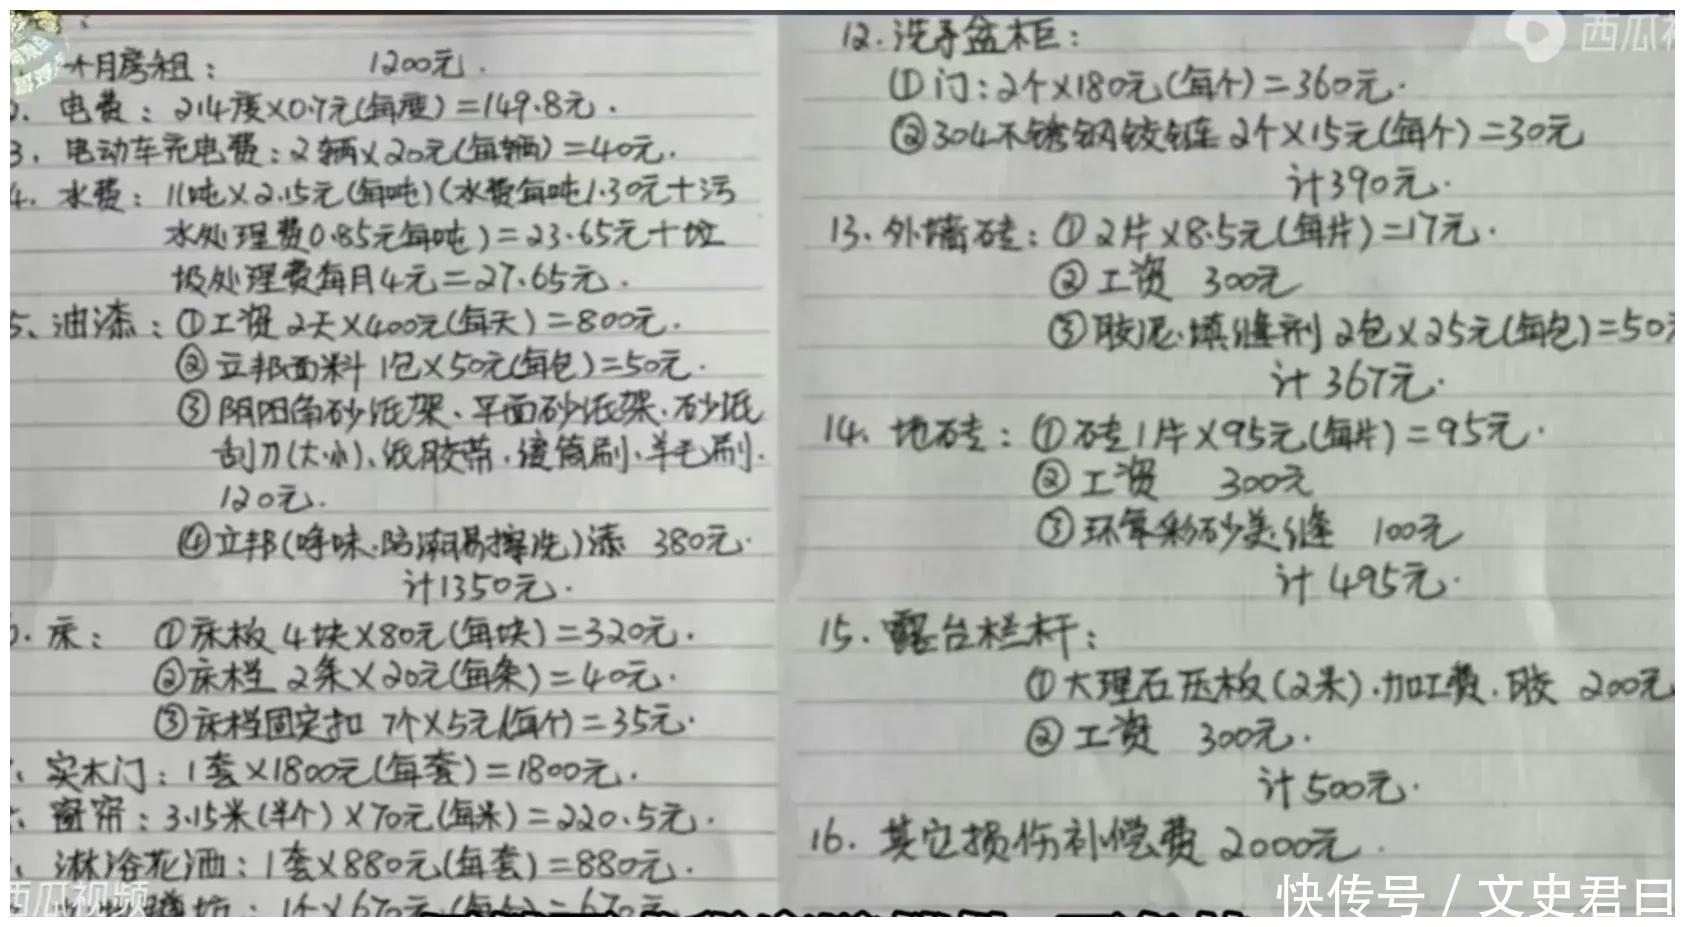 一个月房租: 1200元.
电费: 214度×0.7元(每度)=149.8元.
3、电动车充电费: 2辆×20元(每辆)=40元.
4. 水费: 11吨×2.15元(每吨)(水费每吨1.30元+污
水处理费0.85元每吨)=23.65元+垃
圾处理费每月4元=27.65元.
5、油漆: ①工资 2天×400元(每天)=800元.
②立邦面料 1包×50元(每包)=50元.
③阴阳角砂纸架、平面砂纸架、砂纸
刮刀(大小)、纸胶带、滚筒刷、羊毛刷.
120元.
④立邦(净味.防潮易擦洗)漆 380元.
计1350元.
床: ①床板 4块×80元(每块)=320元.
②床档 2条×20元(每条)=40元.
③床档固定扣 7个×5元(每个)=35元.
实木门: 1套×1800元(每套)=1800元.
窗帘: 3.15米(半个)×70元(每米)=220.5元.
淋浴花洒: 1套×880元(每套)=880元.
1个×670元(每个)=670元
12. 洗手盆柜:
①门: 2个×180元(每个)=360元.
②304不锈钢铰链 2个×15元(每个)=30元
计390元.
13、外墙砖: ①2片×8.5元(每片)=17元.
②工资 300元
③胶泥.填缝剂 2包×25元(每包)=50元
计367元.
14、地砖: ①砖1片×95元(每片)=95元.
②工资 300元
③环氧彩砂美缝 100元
计495元.
15. 露台栏杆:
①大理石压板(2米).加工费.胶 200元
②工资 300元.
计500元.
16. 其它损伤补偿费 2000元.
西瓜视频
西瓜视
快传号 / 文史君曰